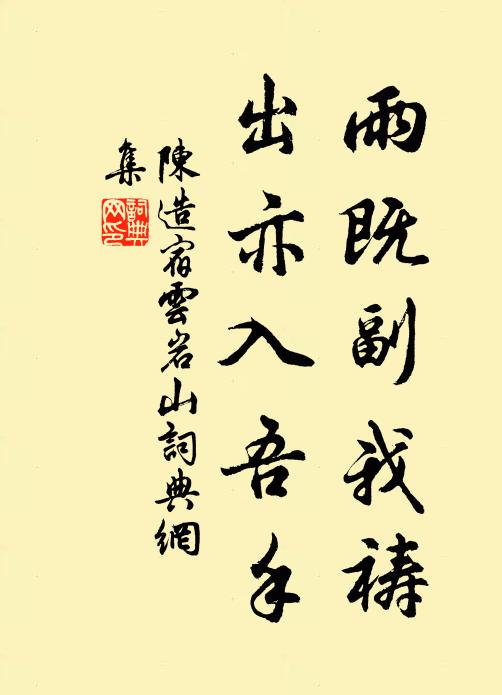 雨既副我祷
出亦入吾手
陳造宿雲岩山詞典網
集
詞典
网印